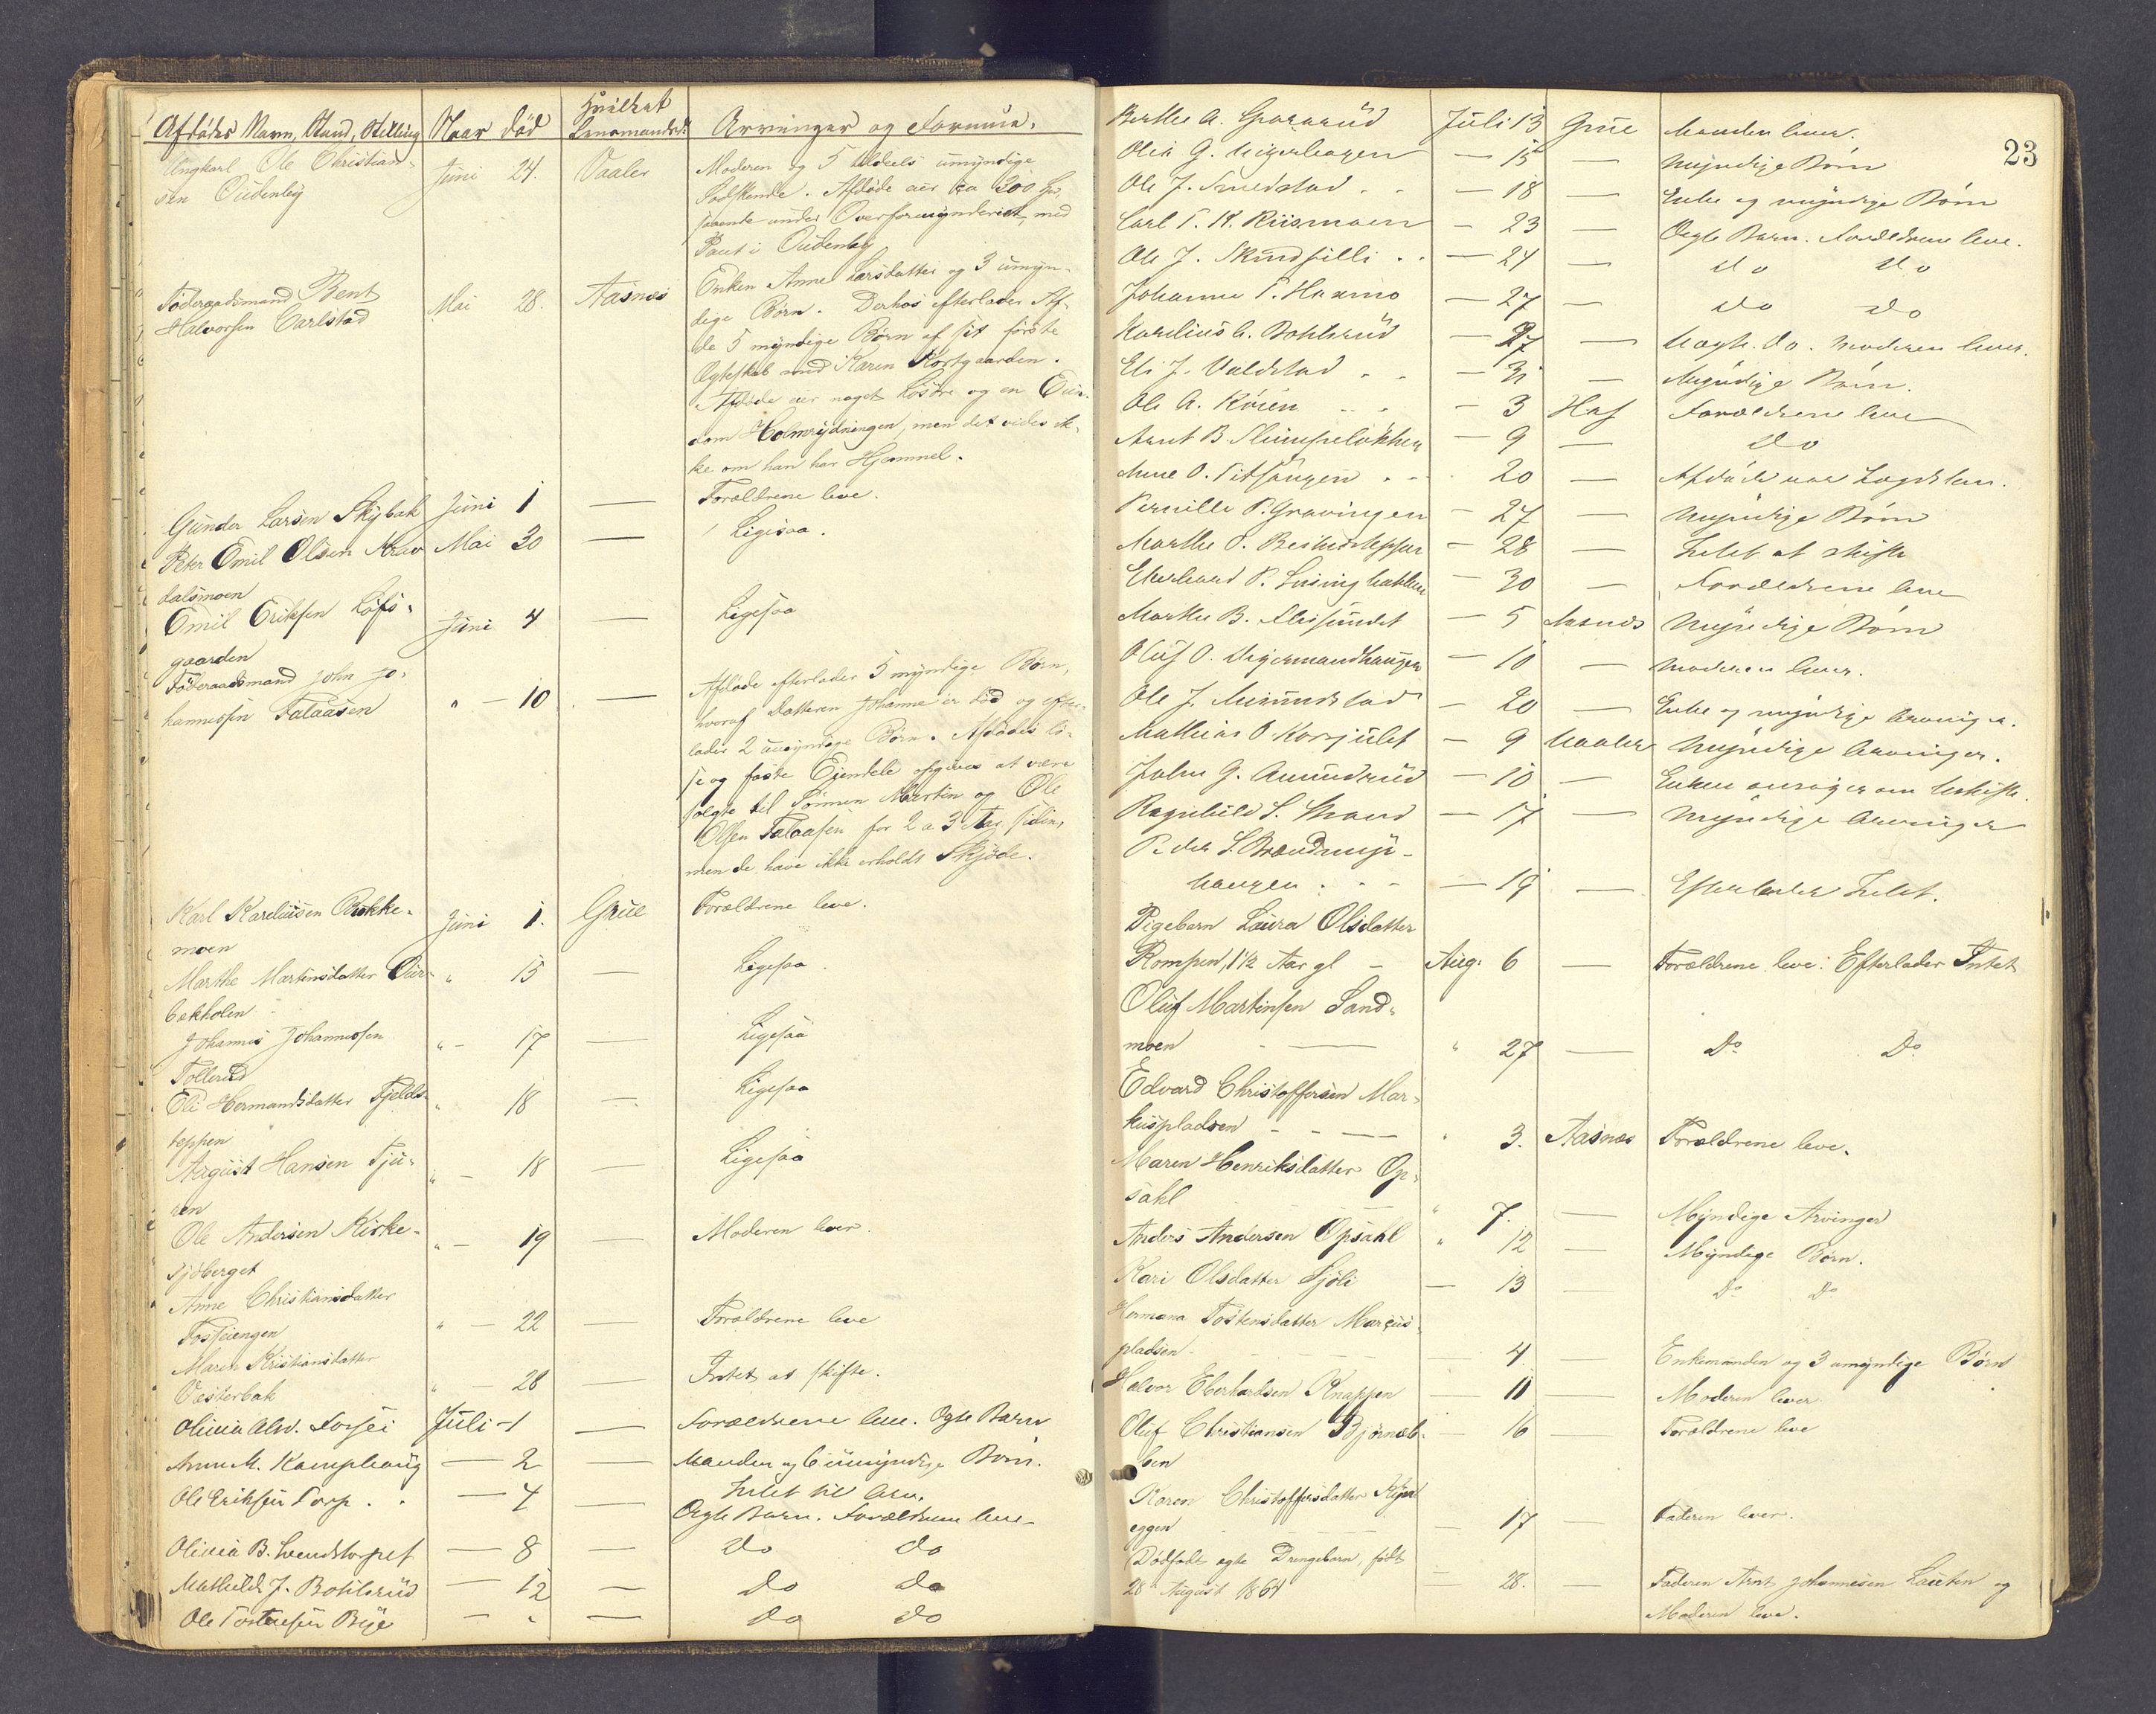 Afdødes Navn, Stand, Stilling Naar død Hvilket Lensmandsd. Arvinger og Formue.
Ungkarl Ole Christian- Juni 24. Vaaler Moderen og 5 tildels umyndige
sen Oudenby Sødskende. Afdøde eier ca 300 Spd
staaende under Overformynderiet, med
Pant i Oudenby
Føderaadsmand Bent Mai 28. Aasnes Enken Anne Larsdatter og 3 umyn-
Halvorsen Carlstad dige Børn. Derhos efterlader Af-
de 5 myndige Børn af sit første
Ægteskab med Karen Kortgaarden.
Afdøde eier noget Løsøre og en Eien-
dom Holmrydningen, men det vides ik-
ke om han har Hjemmel.
Gunder Larsen Skybak Juni 1 — Forældrene leve.
Peter Emil Olsen Krav Mai 30 — Ligesaa.
dalsmoen
Emil Eriksen Løfs- Juni 4 — Ligesaa
gaarden
Føderaadsmand John Jo- " — 10 — Afdøde efterlader 5 myndige Børn,
hannessen Falaasen hvoraf Datteren Johanne er død og efter-
lader 2 umyndige Børn. Afdødes lø-
se og faste Eiendele opgives at være
solgte til Sønnen Martin og Ole
Olsen Falaasen for 2 a 3 Aar siden,
men de have ikke erholdt Skjøde.
Karl Kareliusen Bakke- Juni 1. Grue Forældrene leve.
moen
Marthe Martinsdatter Our- " 15 — Ligesaa.
bækholen
Johannis Johannessen " — 17 — Ligesaa
Tollerud
Eli Hermandsdatter Fjelds- " 18 — Ligesaa
teppen
August Hansen Tju- " — 18 — Ligesaa
ren
Ole Andersen Kirke- " — 19 — Moderen lever.
sjøberget
Anne Christiansdatter
Fosseiengen " — 22 — Forældrene leve
Maren Kristiansdatter
Vesterbak " — 28 — Intet at skifte.
Olivia Alw. Torsei Juli — 1 — Forældrene leve. Ægte Barn
Anne M. Kamphaug — 2 — Manden og 6 umyndige Børn.
Ole Eriksen Torp — 4 — Intet til Arv.
Ægte Barn. Forældrene leve
Olivia B. Svendstorpet — 8 — Do Do
Mathilde J. Bohlsrud — 12 — Do Do
Ole Torstensen Bye — " — Do Do
23
Berthe A. Grasarud Juli 13 Grue Manden lever.
Olia G. — 15 — Myndige Børn
Ole J. Smedstad — 18 — Enke og myndige Børn
Carl T. K. Riismoen — 23 — Ægte Barn. Forældrene leve.
Ole J. Skindsilli — 24 — Do Do
Johanne T. Haxmo — 27 — Do Do
Karelius A. Bohlsrud — 27 — Uægte. Do. Moderen lever.
Eli J. Valdstad — 31 — Myndige Børn.
Ole A. Kroen — 3 Hof Forældrene leve
Arnt B. Slumpeløkken — 9 — Do
Anne O. Titsangen 20 — Afdøde var Lægdslem.
Pernille P. Gravingen — 27 — Myndige Børn
Marthe O. — 28 — Intet at skifte
Eberhard P. — 30 — Forældrene leve
Marthe B. — 5 Aasnes Myndige Børn
Oluf O. — 10 — Moderen lever.
Ole J. Amundstad — 20 — Enke og myndige Arvinger.
Mathias O. — 9 Vaaler Myndige Arvinger.
John G. Amundrud — 10 — Enken om Uskifte.
Ragnhild S. Strand — 17 — Myndige Arvinger
Peder S. Brandmyr-
haugen — 19 — Efterlader Intet.
Pigebarn Laura Olsdatter
Rompen, 1½ Aar gl — Aug: 6 — Forældrene leve. Efterlader Intet
Oluf Martinsen Sand-
moen — " 27 — Do Do
Edvard Christoffersen Mar-
kuspladsen — " 3. Aasnes Forældrene leve.
Maren Henriksdatter Op-
sahl " 7. — Myndige Arvinger
Anders Andersen Opsahl " 12 — Myndige Børn.
Kari Olsdatter Sjøli — 13 — Do Do
Hermana Tostensdatter Marcus-
pladsen — 4 — Enkemanden og 3 umyndige Børn
Halvor Eberhardsen Knappen — 11 — Moderen lever
Oluf Christiansen Bjørneb- — 16 — Forældrene leve
ben
Karen Christoffersdatter
eggen — 17 — Faderen lever.
Dødfødt ægte Drengebarn, født
28 August 1864 — 28. — Faderen Arnt Johannesen Lauten og
Moderen leve.